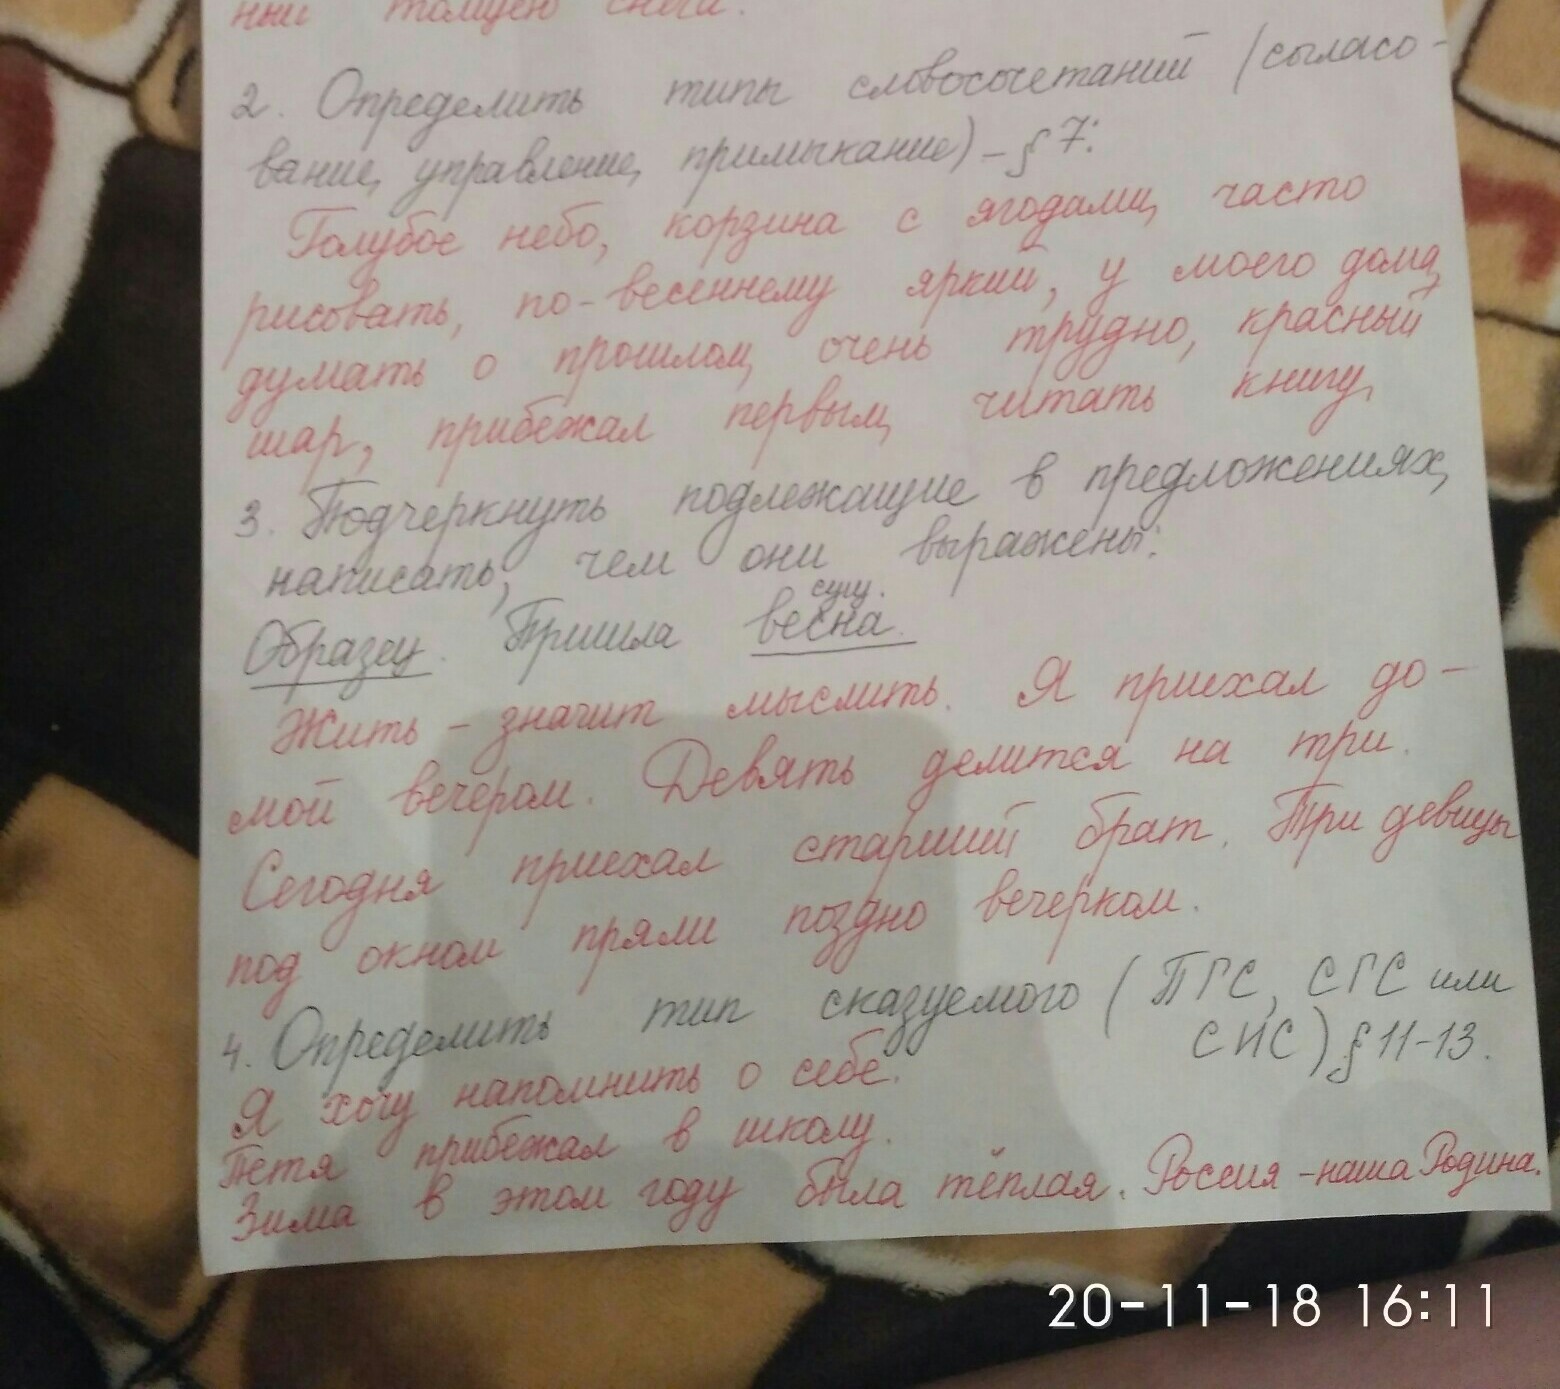 ный толщею снега.
2. Определить типы словосочетаний (сыласо-
вание, управление, примыкание) - § 7:
Голубое небо, корзина с ягодами, часто
рисовать, по-весеннему яркий, у моего дома,
думать о прошлом, очень трудно, красный
шар, прибежал первым, читать книгу,
3. Подчеркнуть подлежащие в предложениях,
написать, чем они выражены:
сущ.
Образец. Пришла весна.
Жить - значит мыслить. Я приехал до-
мой вечером. Девять делится на три.
Сегодня приехал старший брат. Три девицы
под окном пряли поздно вечерком.
4. Определить тип сказуемого (ПГС, СГС или
СИС) § 11-13.
Я хочу напомнить о себе.
Петя прибежал в школу.
Зима в этом году была тёплая. Россия - наша Родина.
20-11-18 16:11